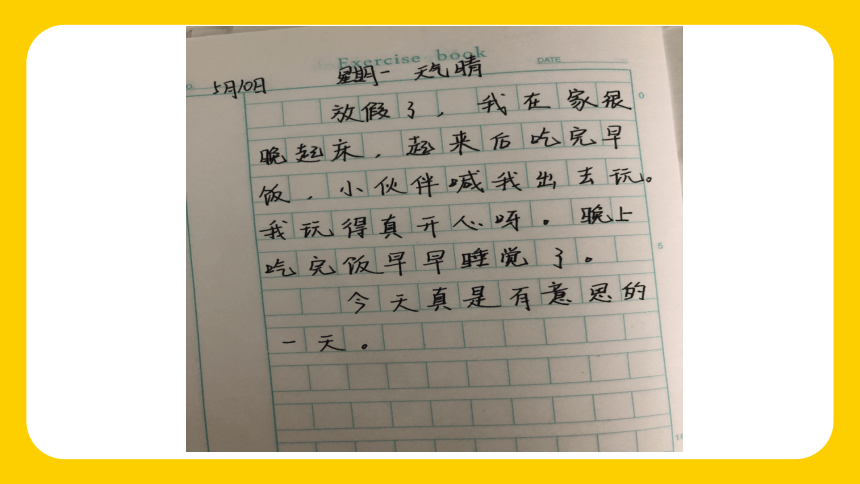 Exercise book
DATE
5月10日 星期一 天气晴
放假了，我在家很
晚起床，起来后吃完早
饭，小伙伴喊我出去玩。
我玩得真开心呀。晚上
吃完饭早早睡觉了。
今天真是有意思的
一天。
0
5
10